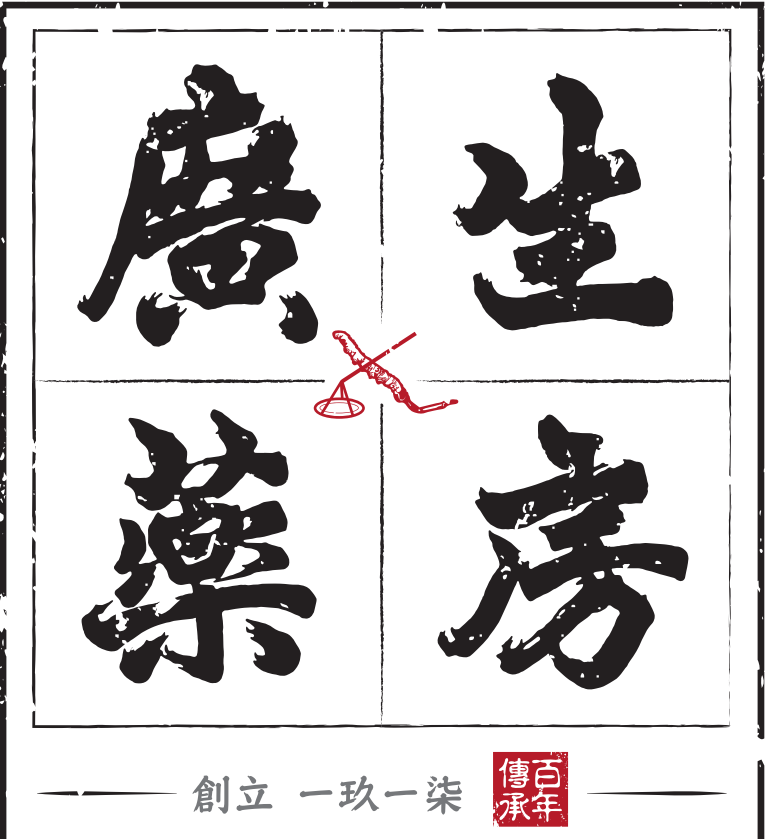 廣生
藥房
創立 一玖一柒
百年
傳承